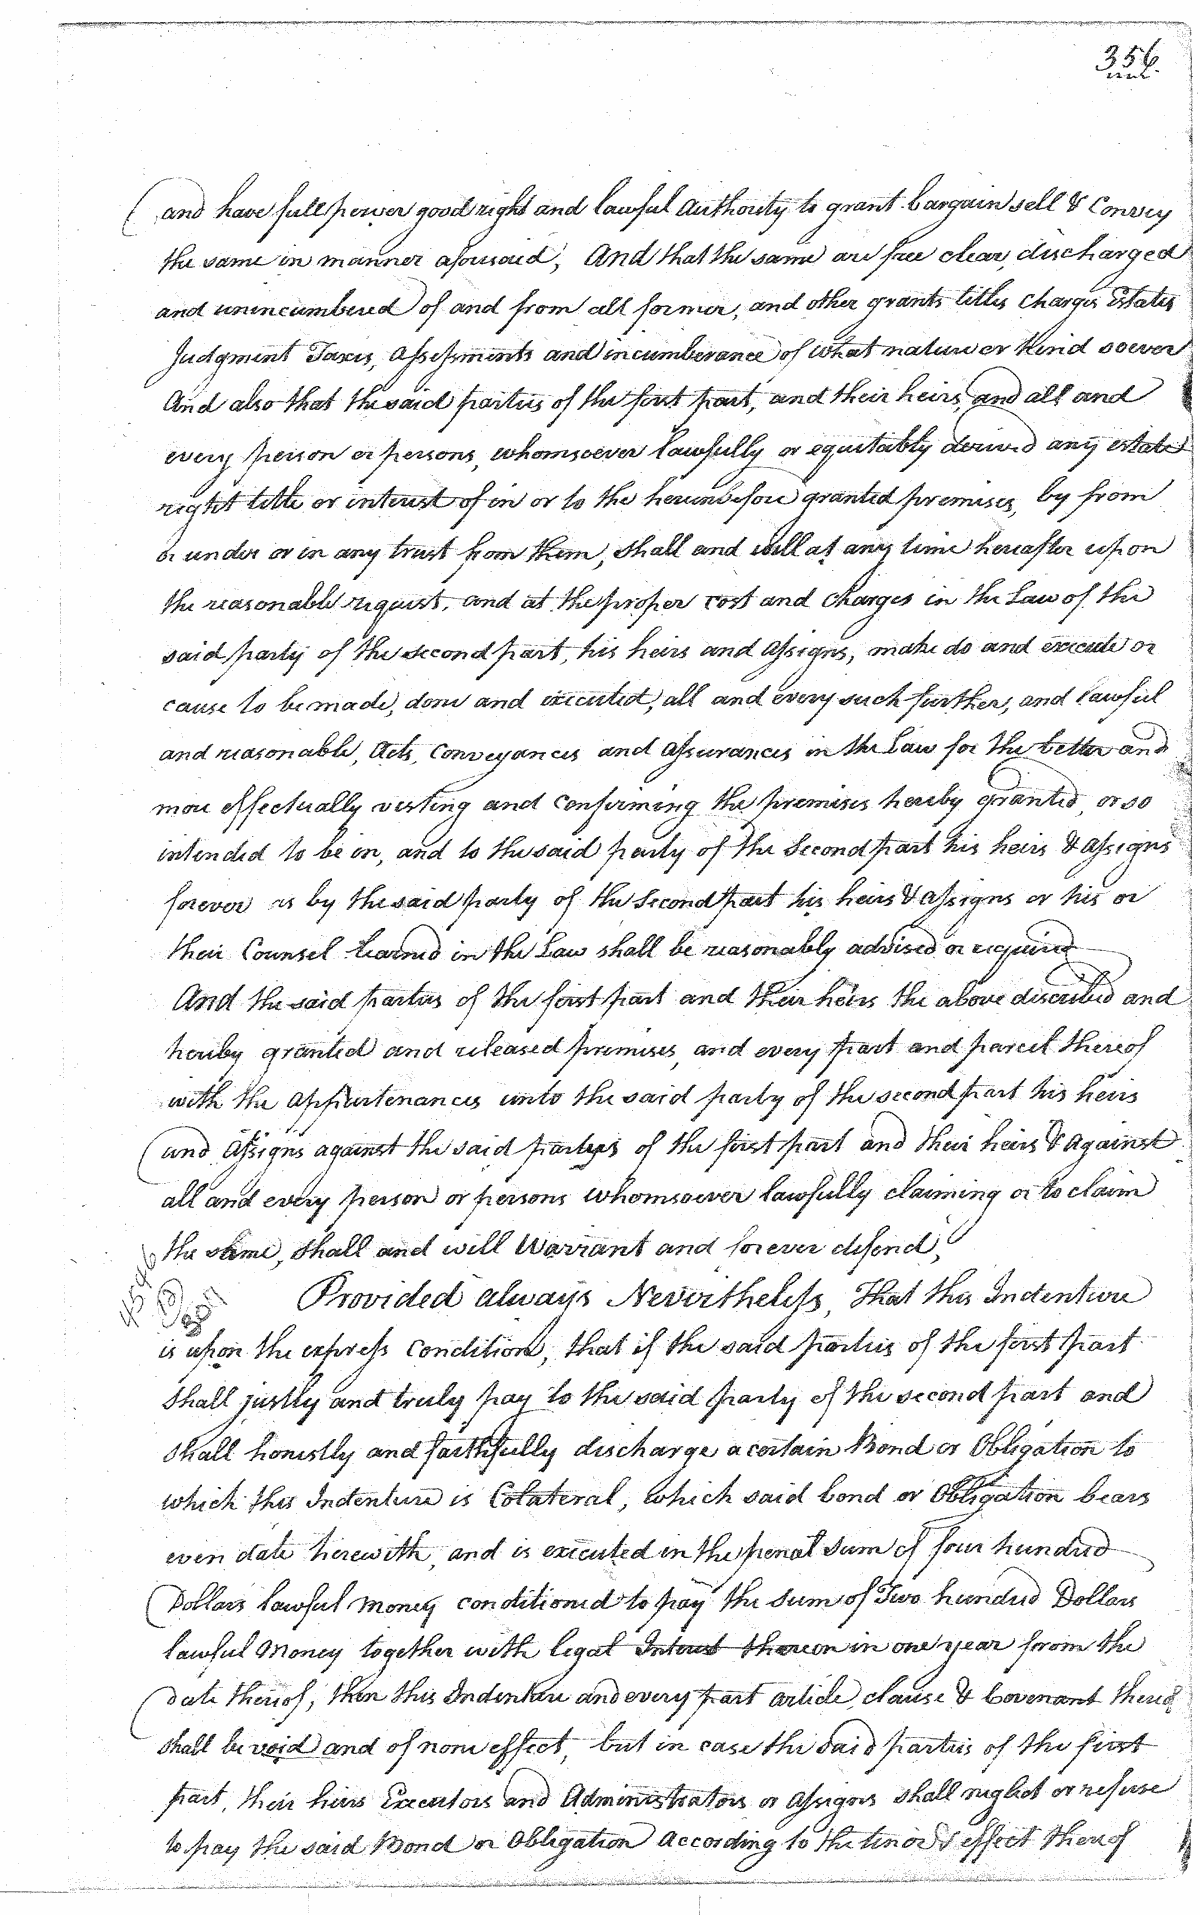 356
and have full power good right and lawful Authority to grant bargain sell & Convey
the same in manner aforesaid, And that the same are free clear, discharged
and unincumbered of and from all former, and other grants titles Charges Estates
Judgment Taxes, Assessments and incumberance of what nature or Kind soever
And also that the said parties of the first part, and their heirs, and all and
every person or persons, whomsoever lawfully or equitably derived any estate
right title or interest of in or to the hereinbefore granted premises, by from
or under or in any trust from them, shall and will at any time hereafter upon
the reasonable request, and at the proper cost and charges in the Law of the
said party of the second part, his heirs and assigns, make do and execute or
cause to be made, done and executed, all and every such further, and lawful
and reasonable, Acts, Conveyances and Assurances in the Law for the better and
more effectually vesting and Confirming the premises hereby granted, or so
intended to be in, and to the said party of the Second part his heirs & assigns
forever as by the said party of the Second part his heirs & assigns or his or
their Counsel learned in the Law shall be reasonably advised or required
And the said parties of the first part and their heirs the above discribed and
hereby granted and released premises, and every part and parcel thereof
with the appurtenances unto the said party of the second part his heirs
and Assigns against the said partys of the first part and their heirs & Against
all and every person or persons whomsoever lawfully claiming or to claim
the same, shall and will Warrant and forever defend,
Provided always Nevertheless, That this Indenture
is upon the express Condition, that if the said parties of the first part
shall justly and truly pay to the said party of the second part and
shall honestly and faithfully discharge a certain Bond or Obligation to
which this Indenture is Colateral, which said bond or Obligation bears
even date herewith, and is executed in the penal Sum of four hundred
Dollars lawful Money conditioned to pay the sum of Two hundred Dollars
lawful Money together with legal Interest thereon in one year from the
date thereof, then this Indenture and every part article, clause & Covenant thereof
shall be void and of none effect, but in case the said parties of the first
part, their heirs Executors and Administrators or assigns shall neglect or refuse
to pay the said Bond or Obligation according to the tenor & effect thereof